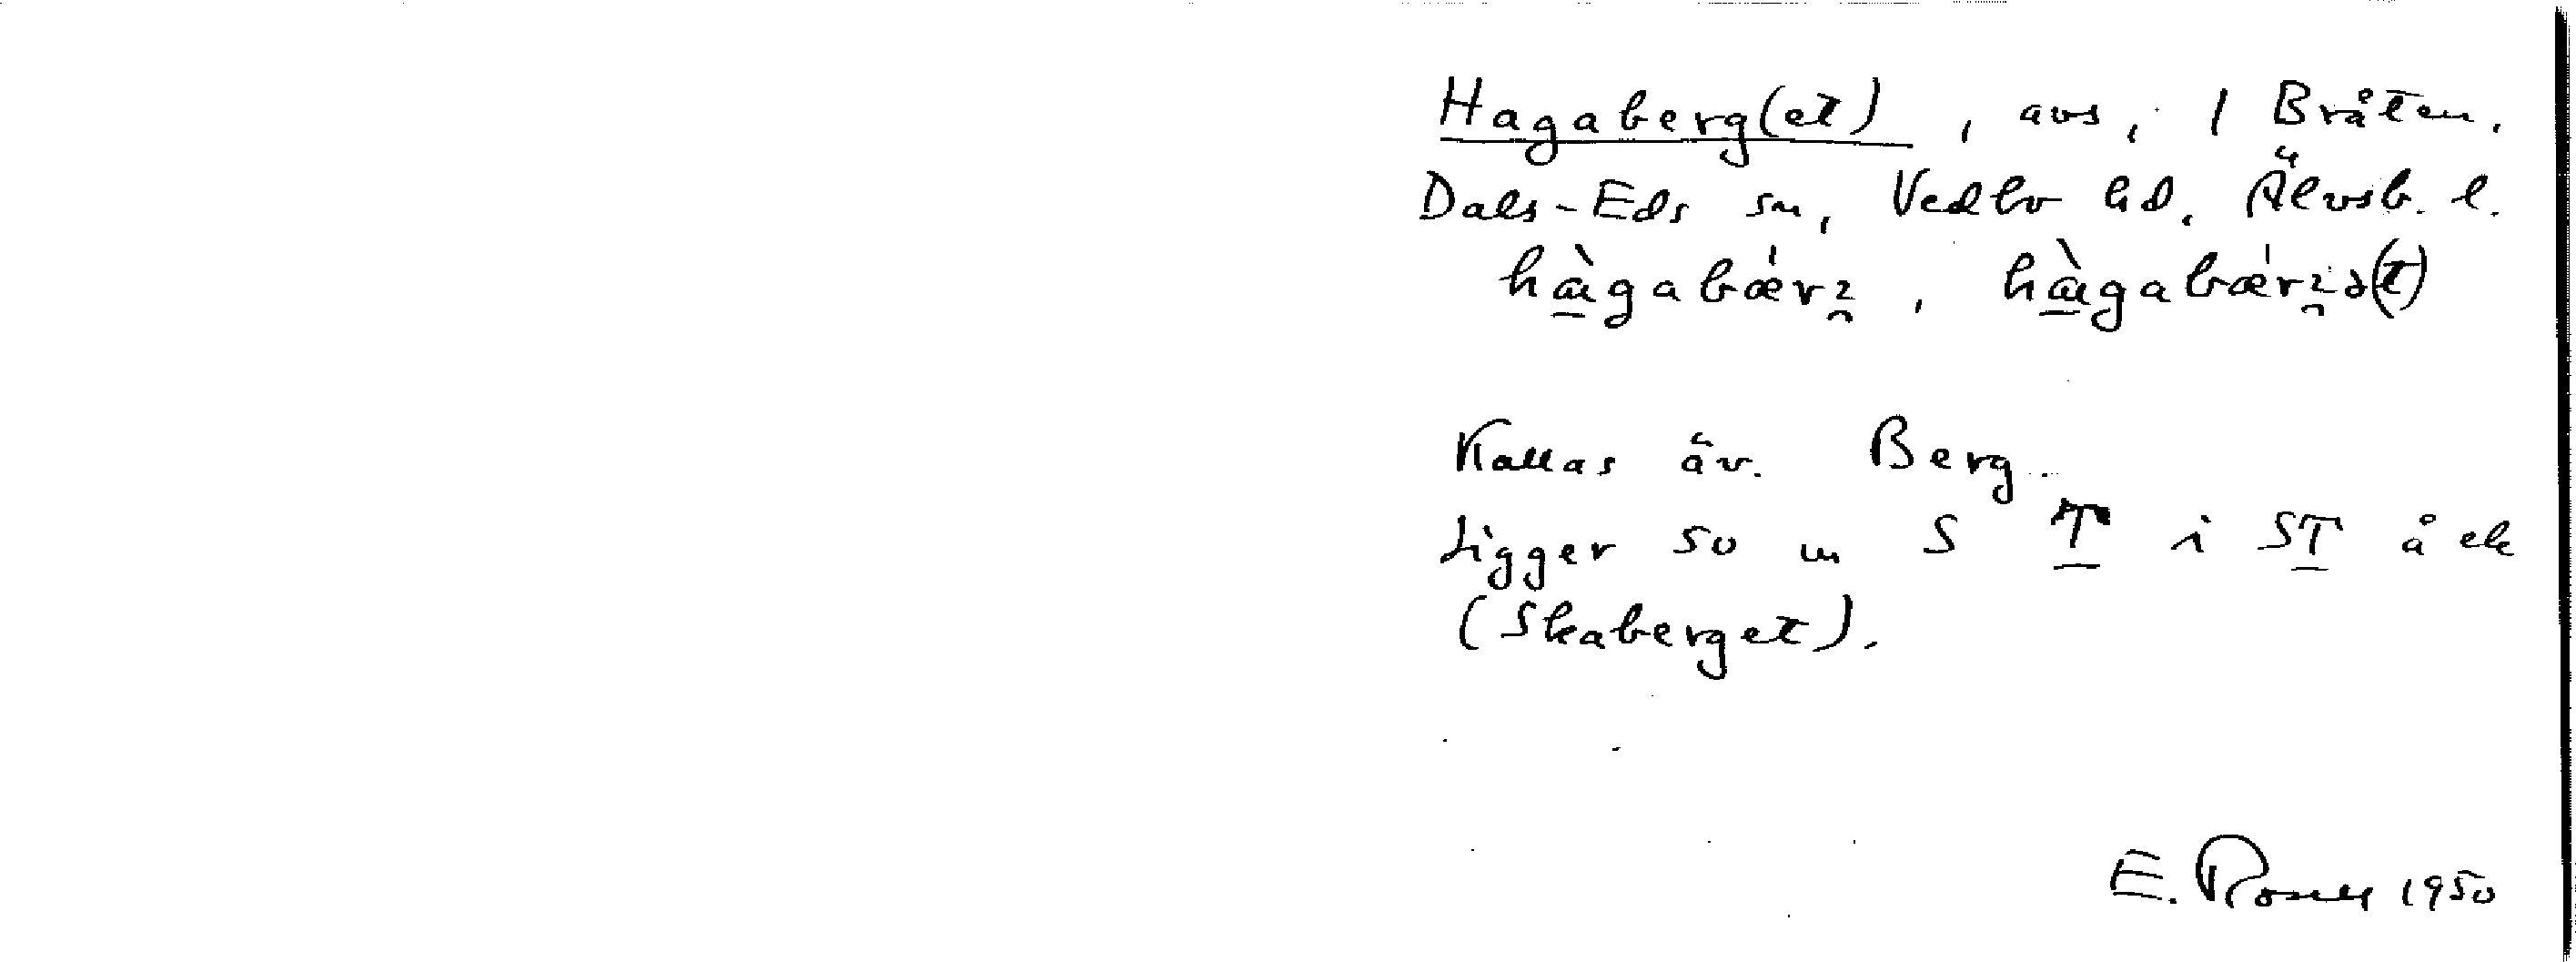 Hagaberg(et), avs, 1 Bråten,
Dals-Eds sn, Vedbo hd, Älvsb. l.
Kallas äv. Berg.
Ligger 50 m S T i ST å ek
(Skaberget).
E. 1950